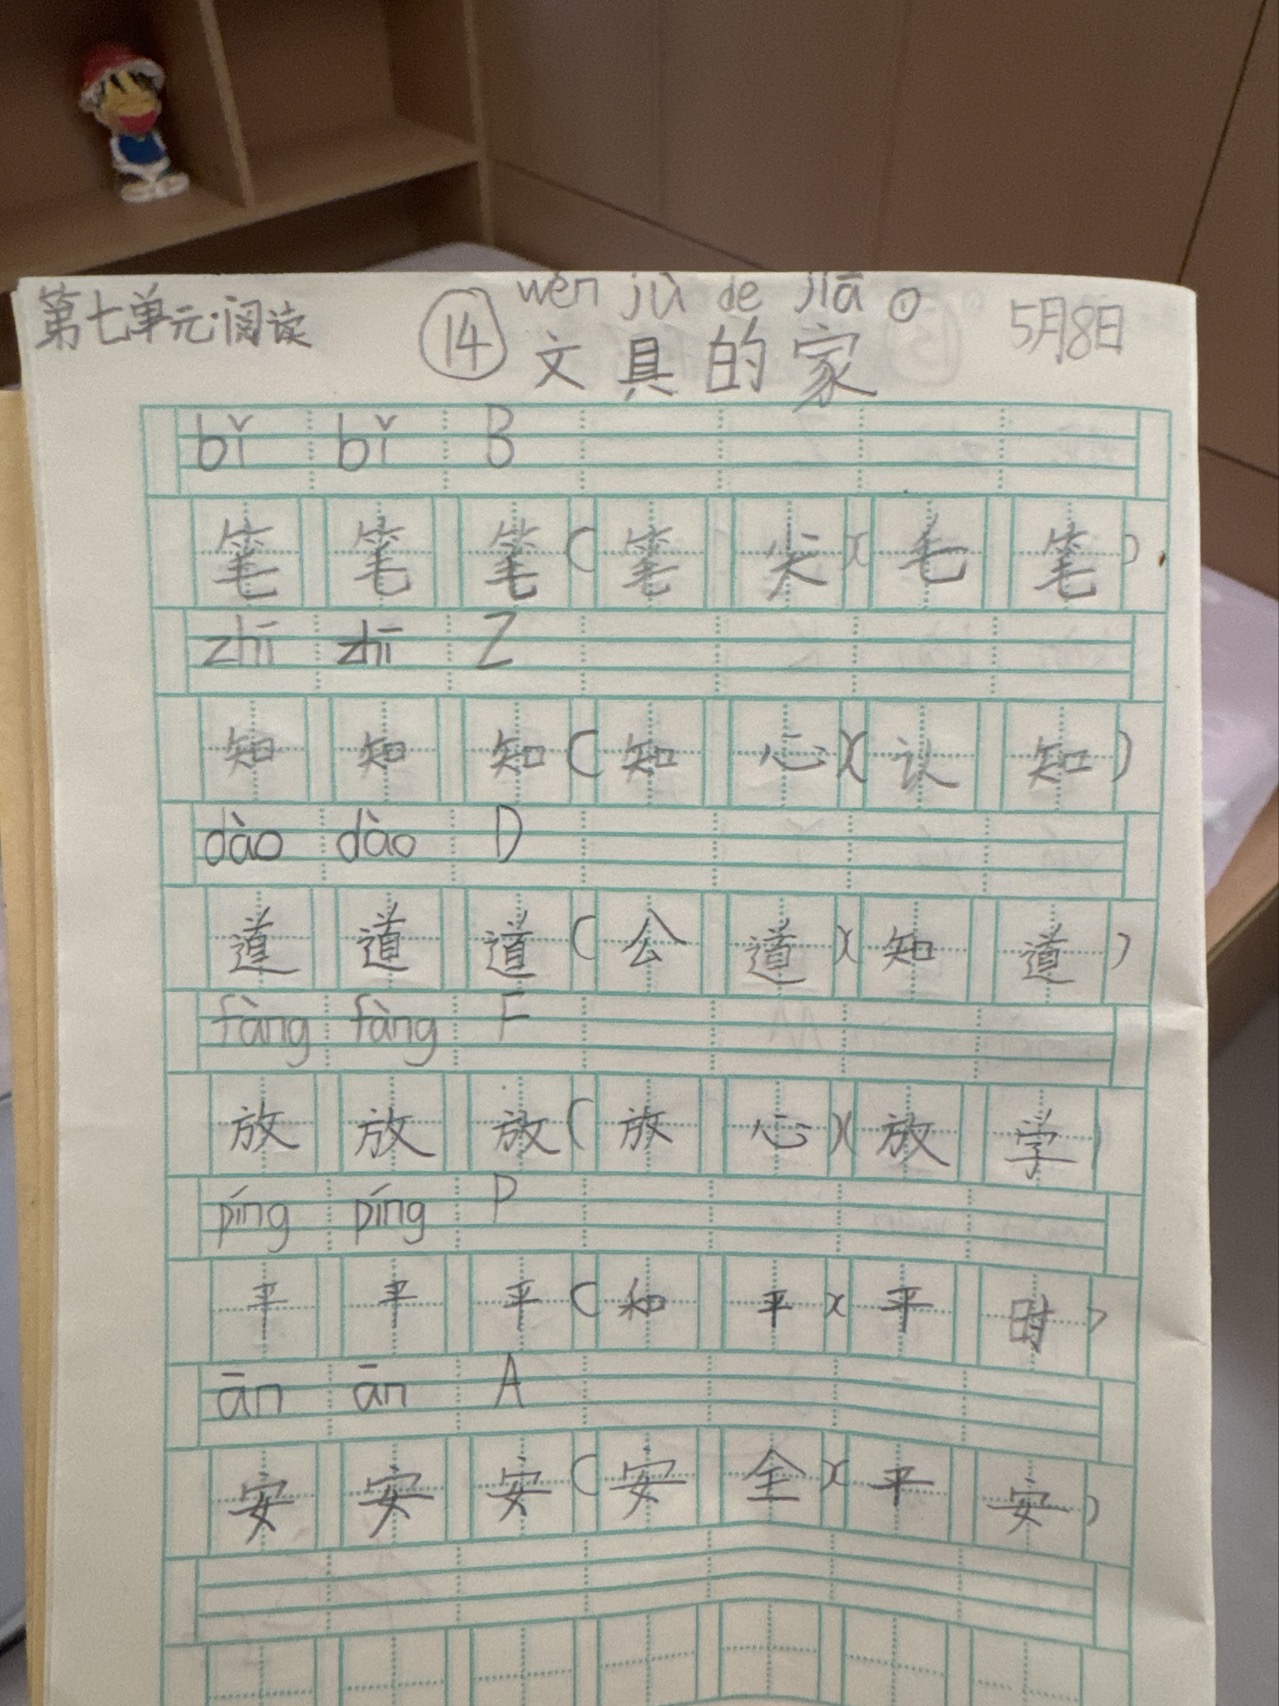 第七单元·阅读 ⑭ wén jù de jiā ① 5月8日
文具的家
bǐ bǐ B
笔 笔 笔(笔 尖)(毛 笔)
zhī zhī Z
知 知 知(知 心)(认 知)
dào dào D
道 道 道(公 道)(知 道)
fàng fàng F
放 放 放(放 心)(放 学)
píng píng P
平 平 平(和 平)(平 时)
ān ān A
安 安 安(安 全)(平 安)